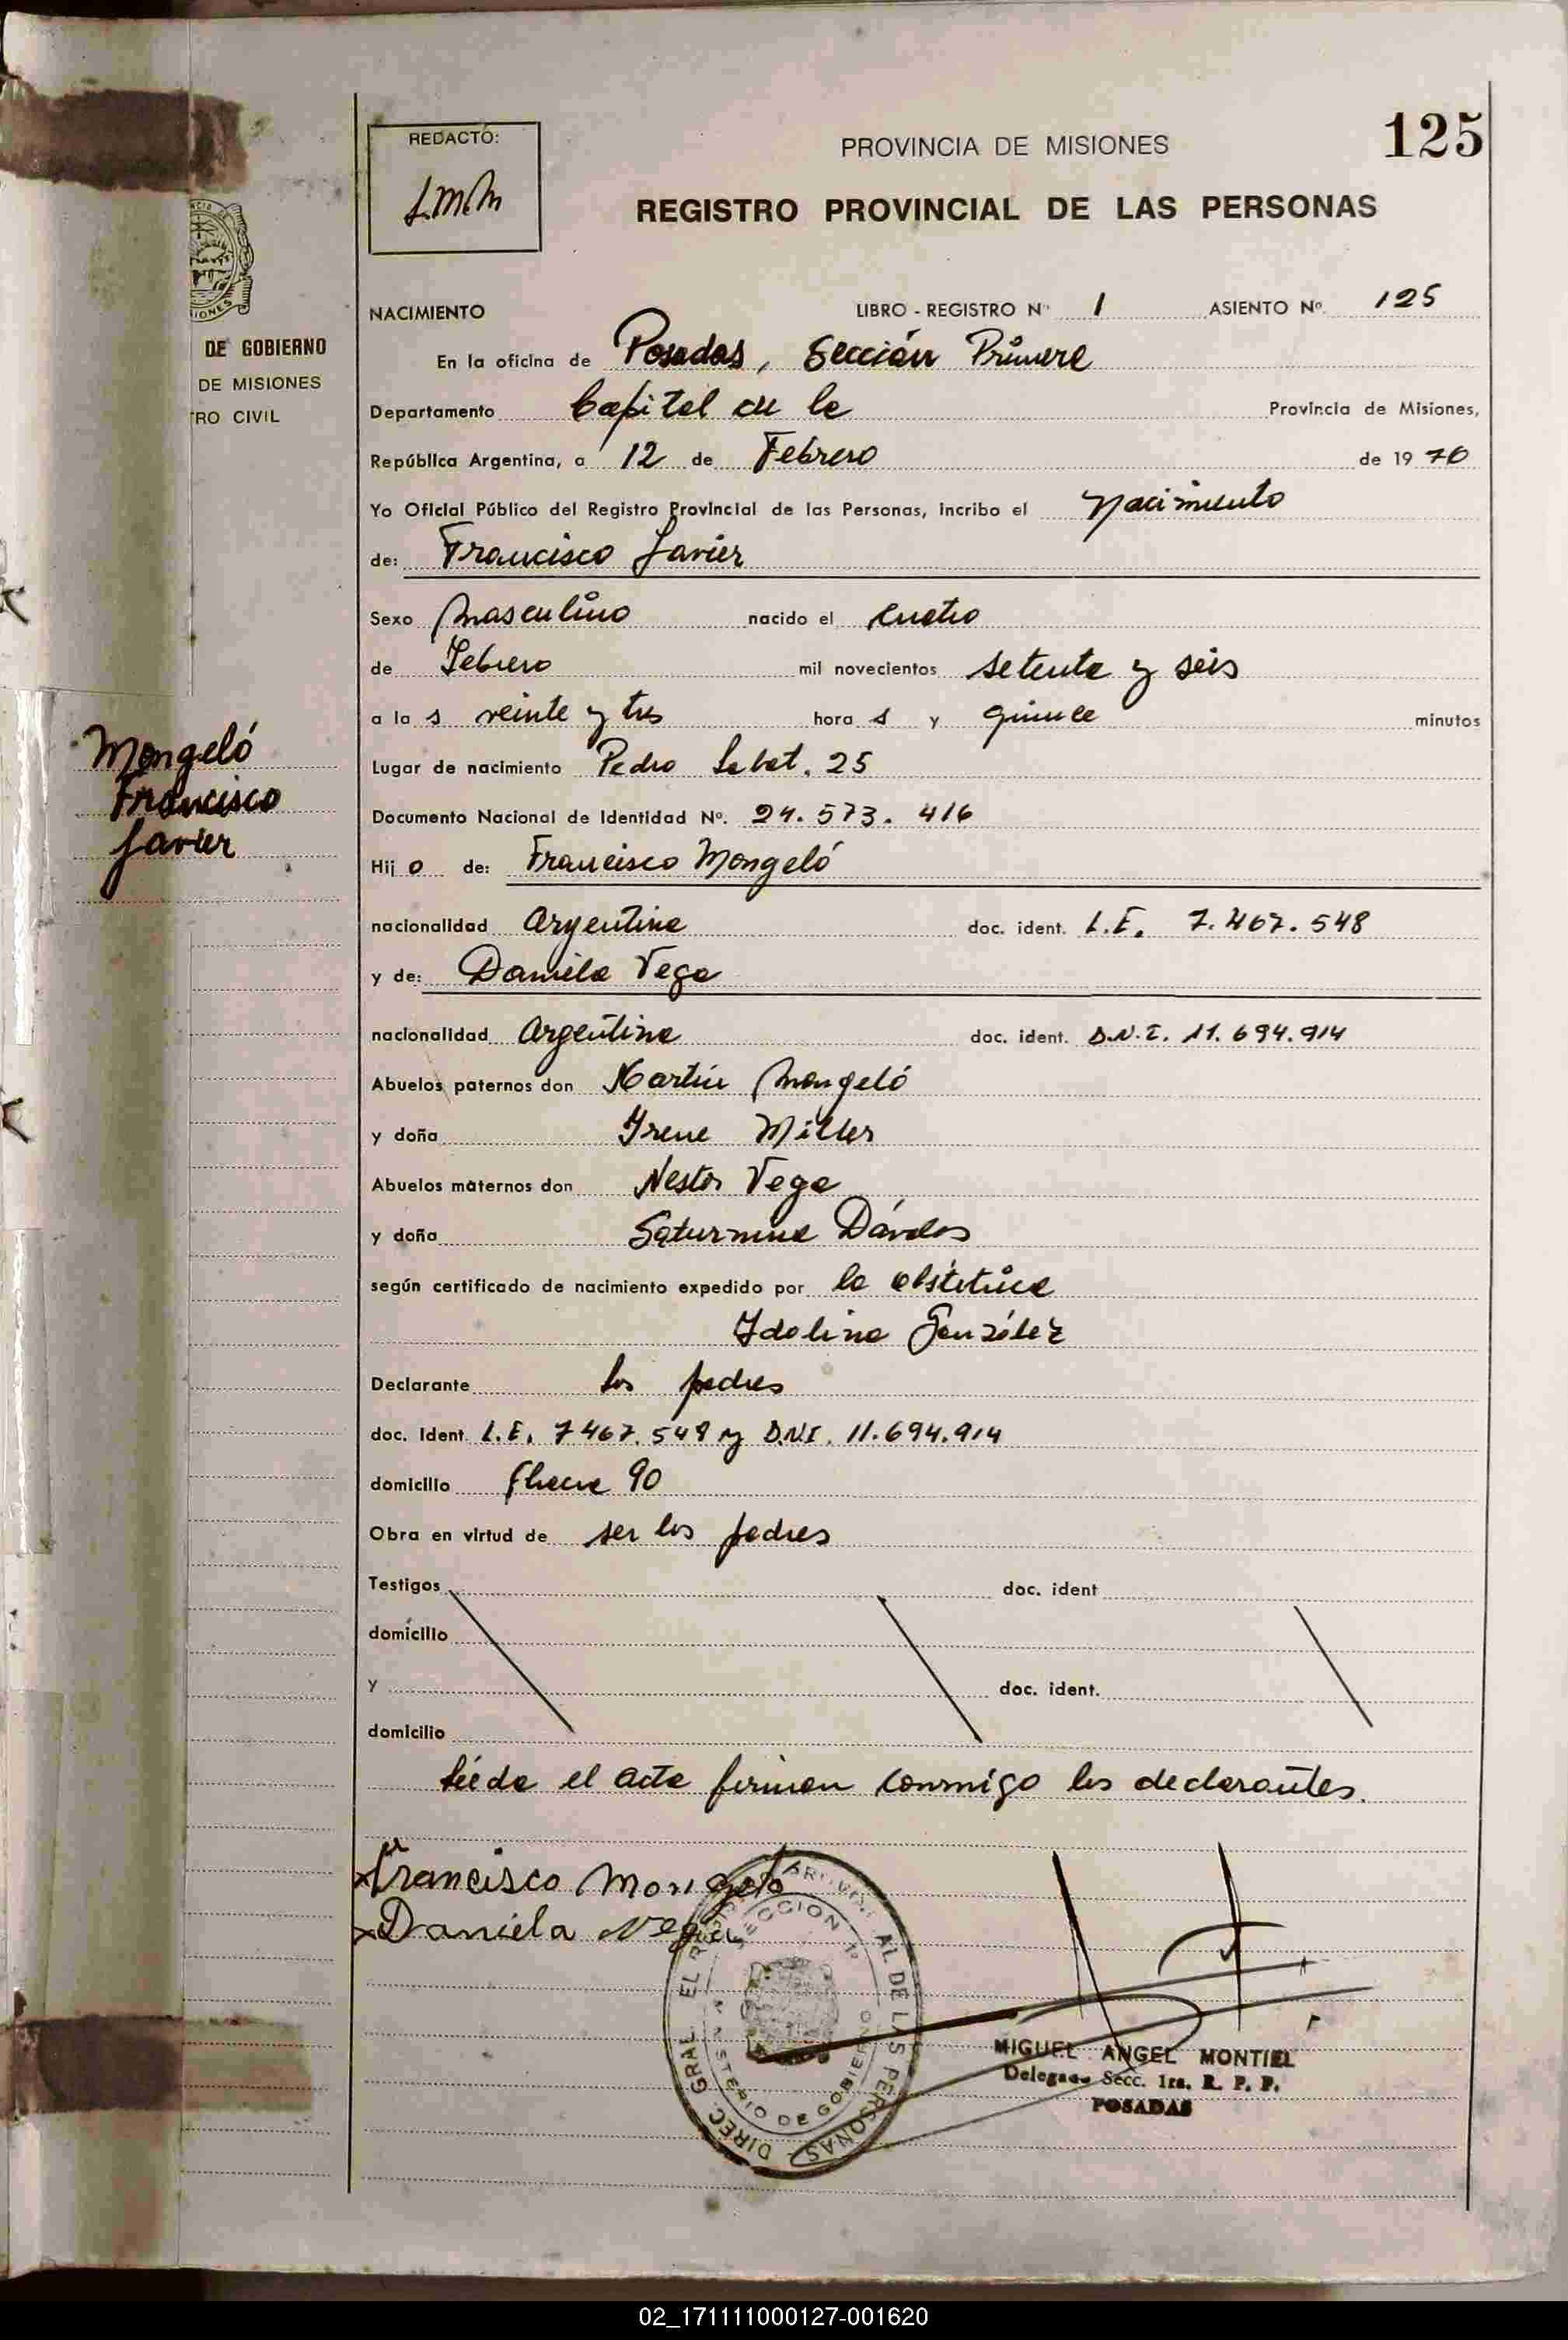 REDACTÓ:
PROVINCIA DE MISIONES
125
REGISTRO PROVINCIAL DE LAS PERSONAS
NACIMIENTO LIBRO - REGISTRO Nº 1 ASIENTO Nº 125
DE GOBIERNO
DE MISIONES
RO CIVIL
En la oficina de Posadas, Sección Primera
Departamento Capital de la Provincia de Misiones,
República Argentina, a 12 de Febrero de 1976
Yo Oficial Público del Registro Provincial de las Personas, incribo el nacimiento
de: Francisco Javier
Sexo masculino nacido el cuatro
de Febrero mil novecientos setenta y seis
a la s veinte y tres hora s y quince minutos
Mongeló
Francisco
Javier
Lugar de nacimiento Pedro 25
Documento Nacional de Identidad Nº. 24.573.416
Hij o de: Francisco Mongeló
nacionalidad Argentina doc. ident. L.E. 7.467.548
y de: Daniela Vega
nacionalidad Argentina doc. ident. D.N.I. 11.694.914
Abuelos paternos don Martín Mongeló
y doña Irene Miller
Abuelos maternos don Nestor Vega
y doña Saturnina
según certificado de nacimiento expedido por la obstetrica
Idolina González
Declarante los padres
doc. Ident. L.E. 7467.548 y D.N.I. 11.694.914
domicilio 90
Obra en virtud de ser los padres
Testigos doc. ident
domicilio
y doc. ident.
domicilio
Leída el acta firman conmigo los declarantes.
Francisco Mongelo
Daniela Vega
DIREC. GRAL. EL REGISTRO PROVINCIAL DE LAS PERSONAS
SECCION 1ª
MINISTERIO DE GOBIERNO
MIGUEL ANGEL MONTIEL
Delegado Secc. 1ra. R. P. P.
POSADAS
02_171111000127-001620